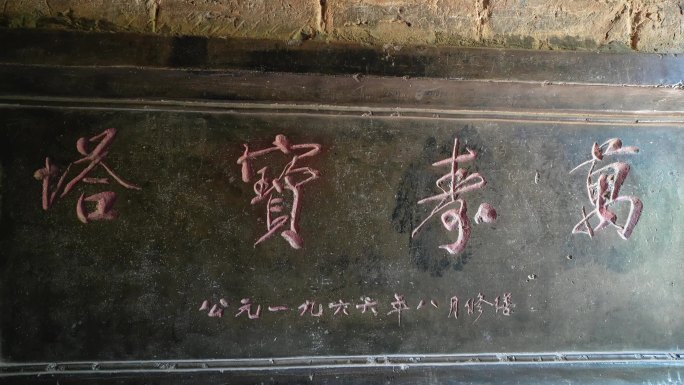 萬壽寳塔
公元一九六六年八月修塔